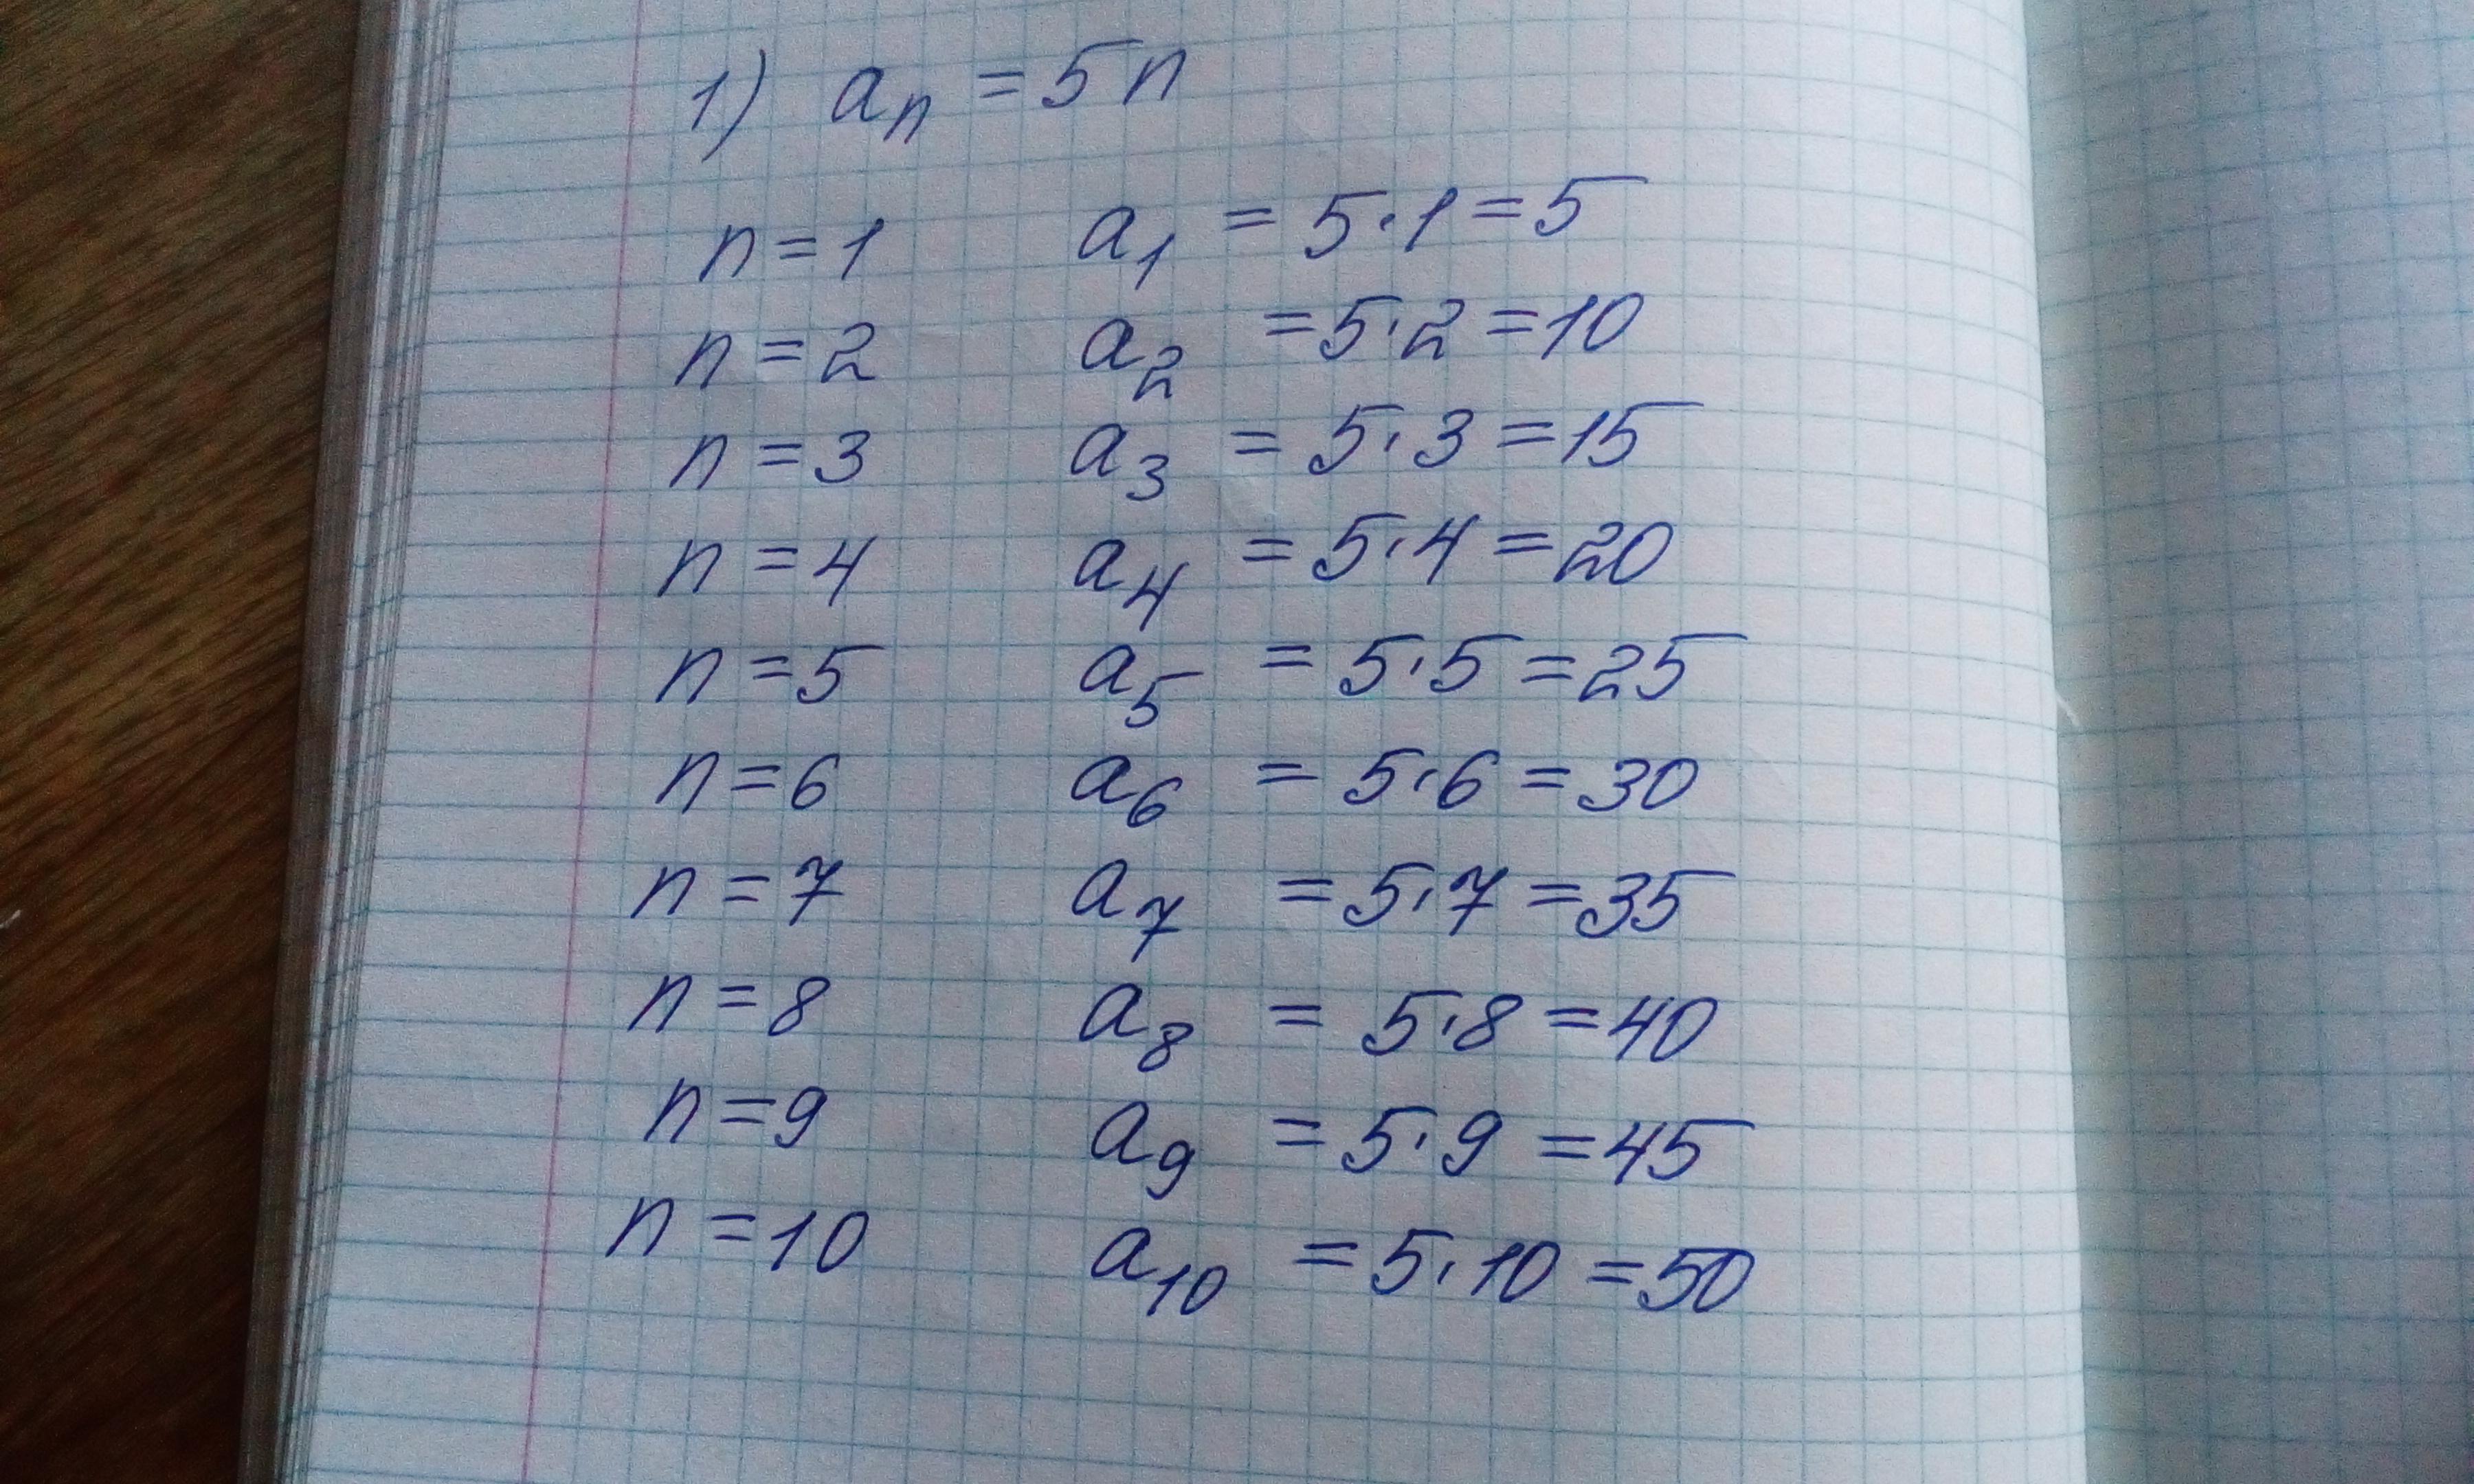 1) aₙ = 5n
n = 1 a₁ = 5·1 = 5
n = 2 a₂ = 5·2 = 10
n = 3 a₃ = 5·3 = 15
n = 4 a₄ = 5·4 = 20
n = 5 a₅ = 5·5 = 25
n = 6 a₆ = 5·6 = 30
n = 7 a₇ = 5·7 = 35
n = 8 a₈ = 5·8 = 40
n = 9 a₉ = 5·9 = 45
n = 10 a₁₀ = 5·10 = 50